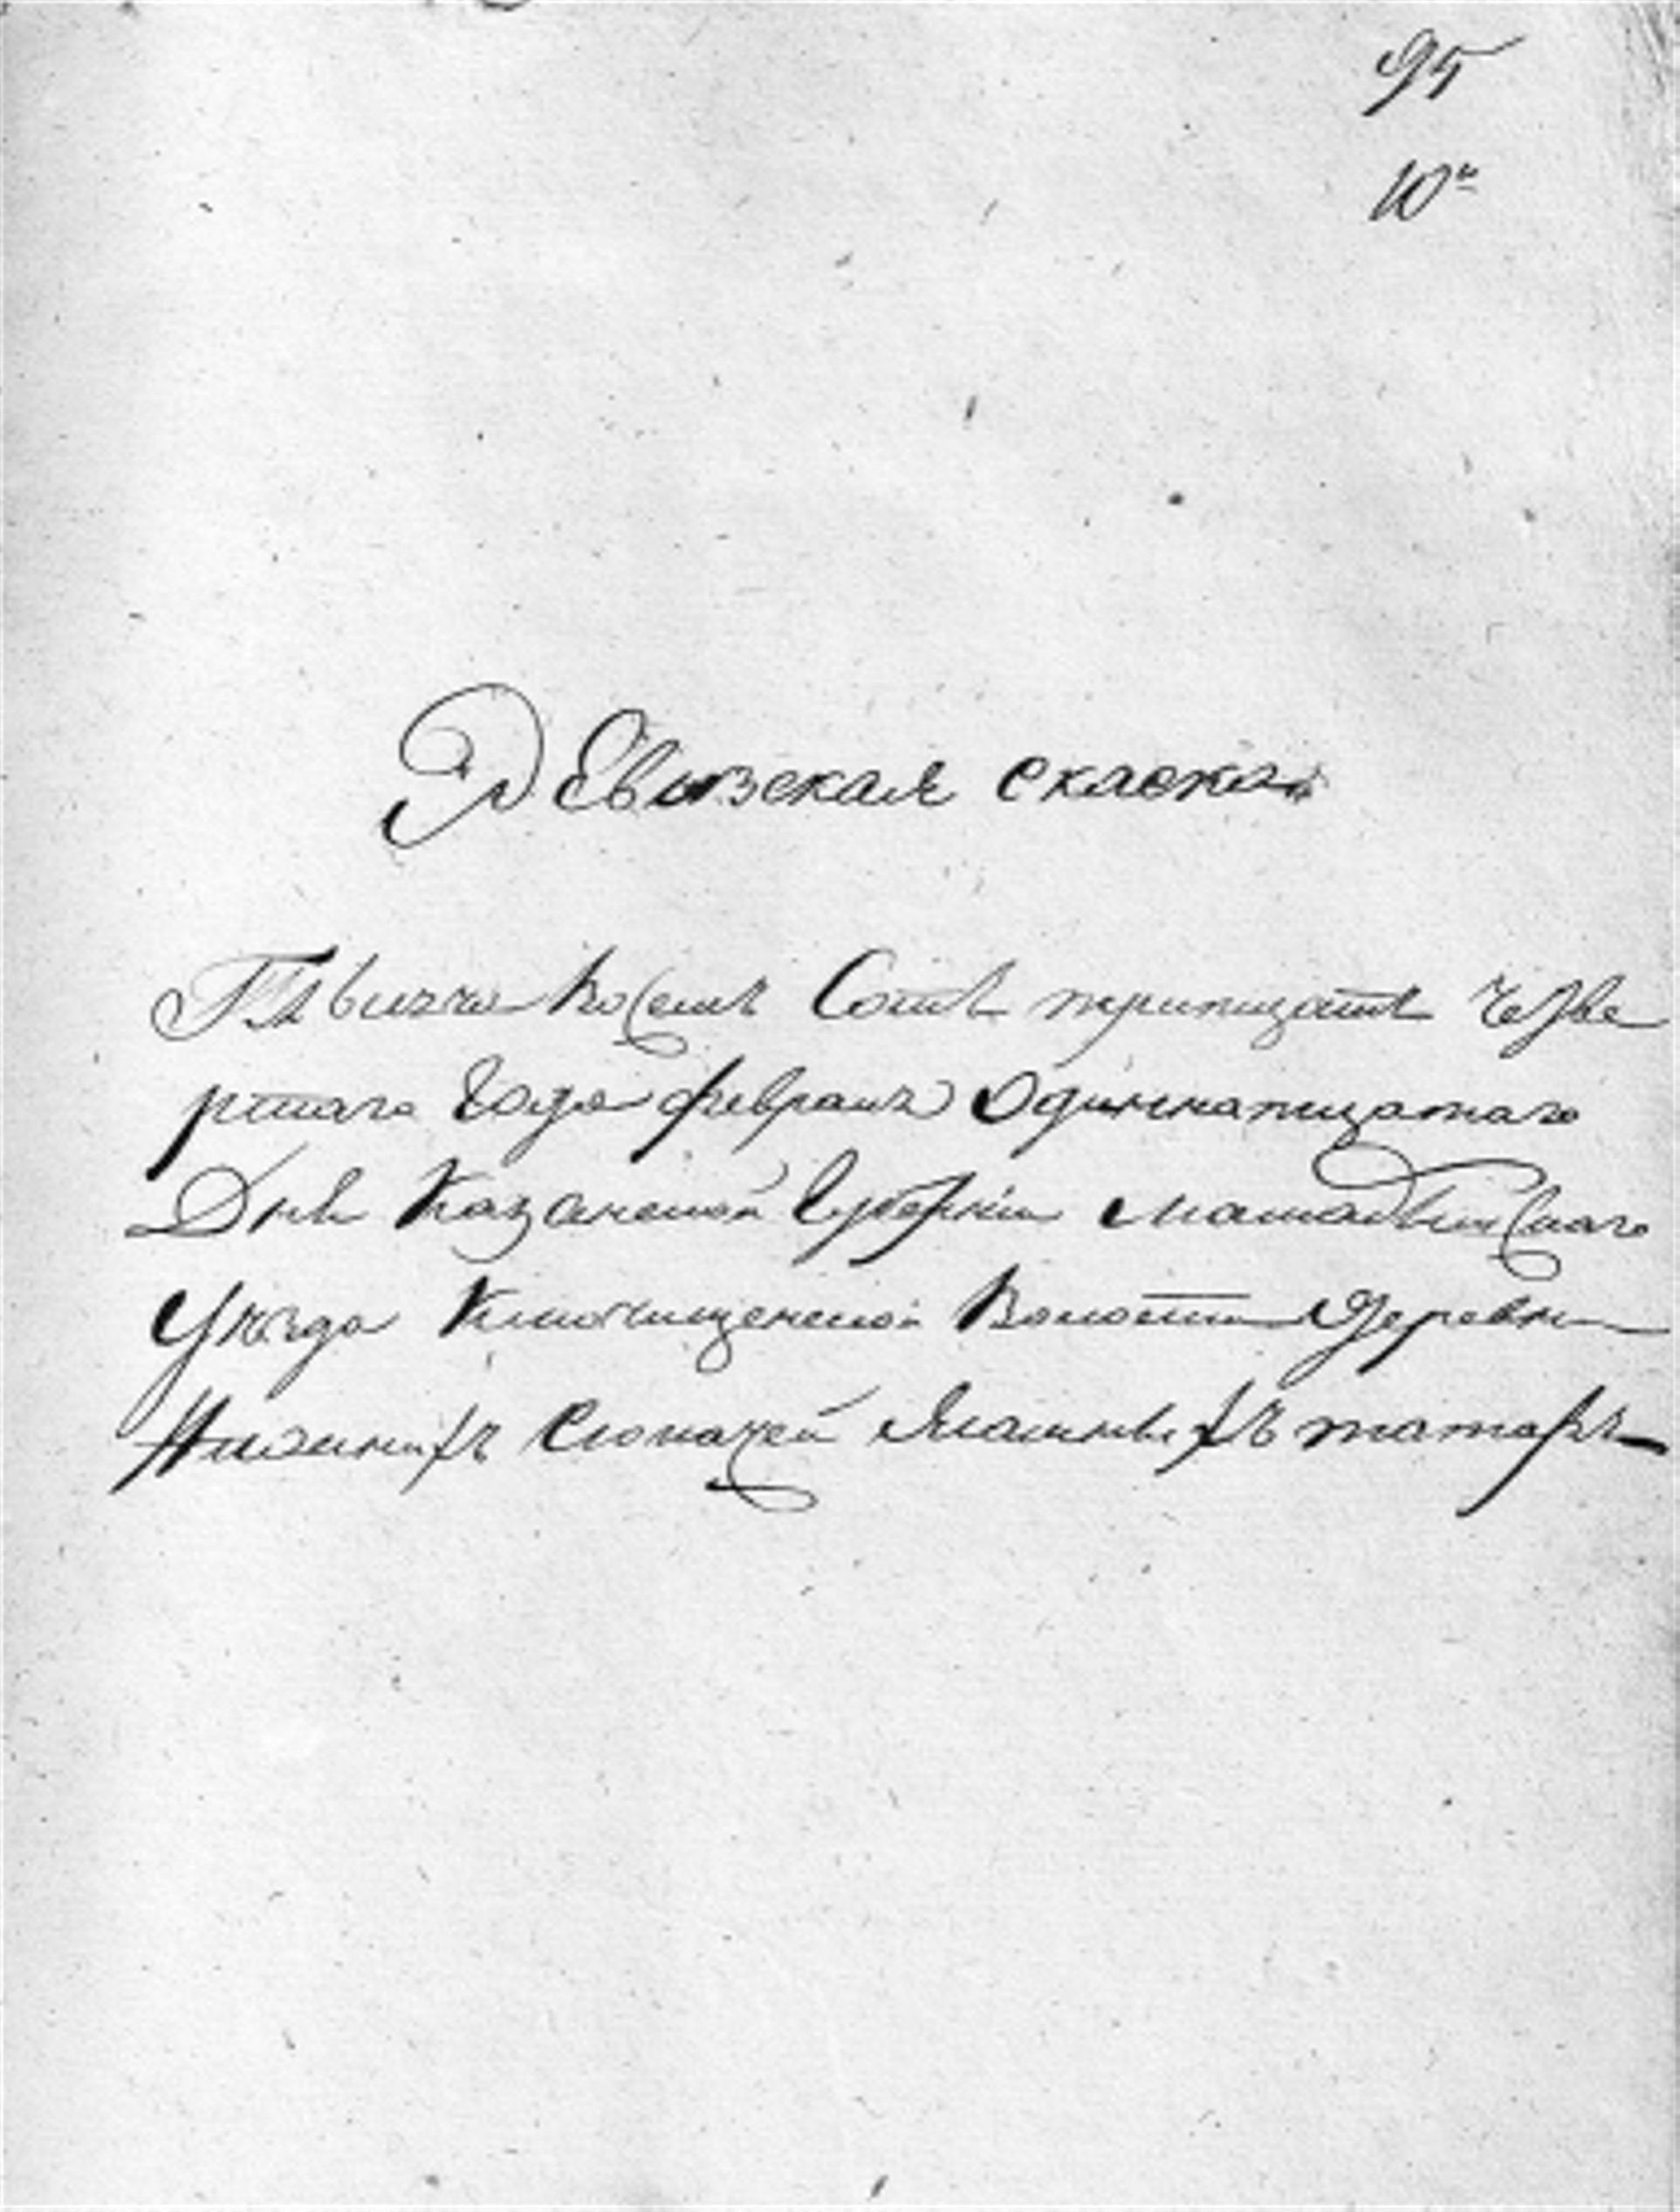 95
10й
Ревизская скаска
Тысяча восемь Сотъ тритцать четве
ртаго Года февраля Одиннатцатаго
Дня Казанской Губернии мамадышскаго
Уезда Ключищенской Волости Деревни
татаръ